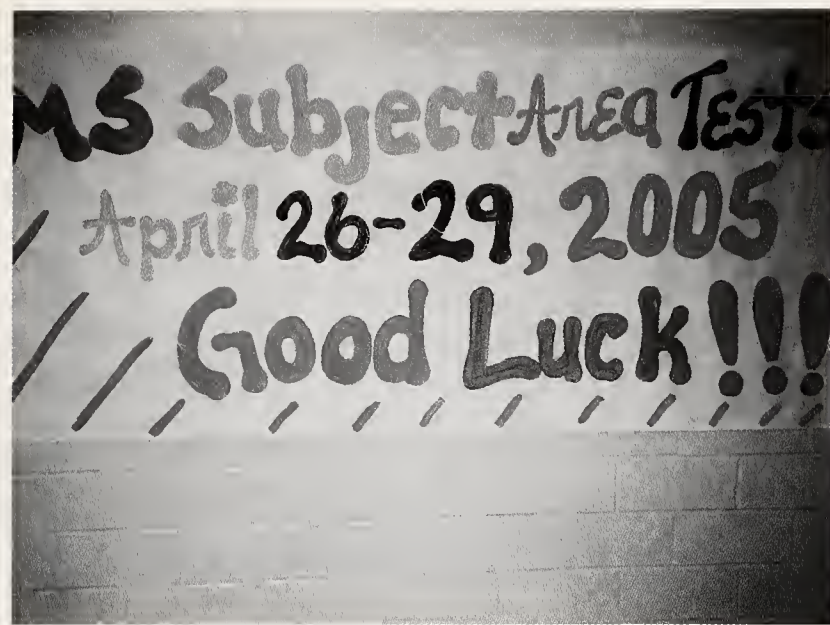 MS Subject Area Tests
April 26-29, 2005
Good Luck!!!